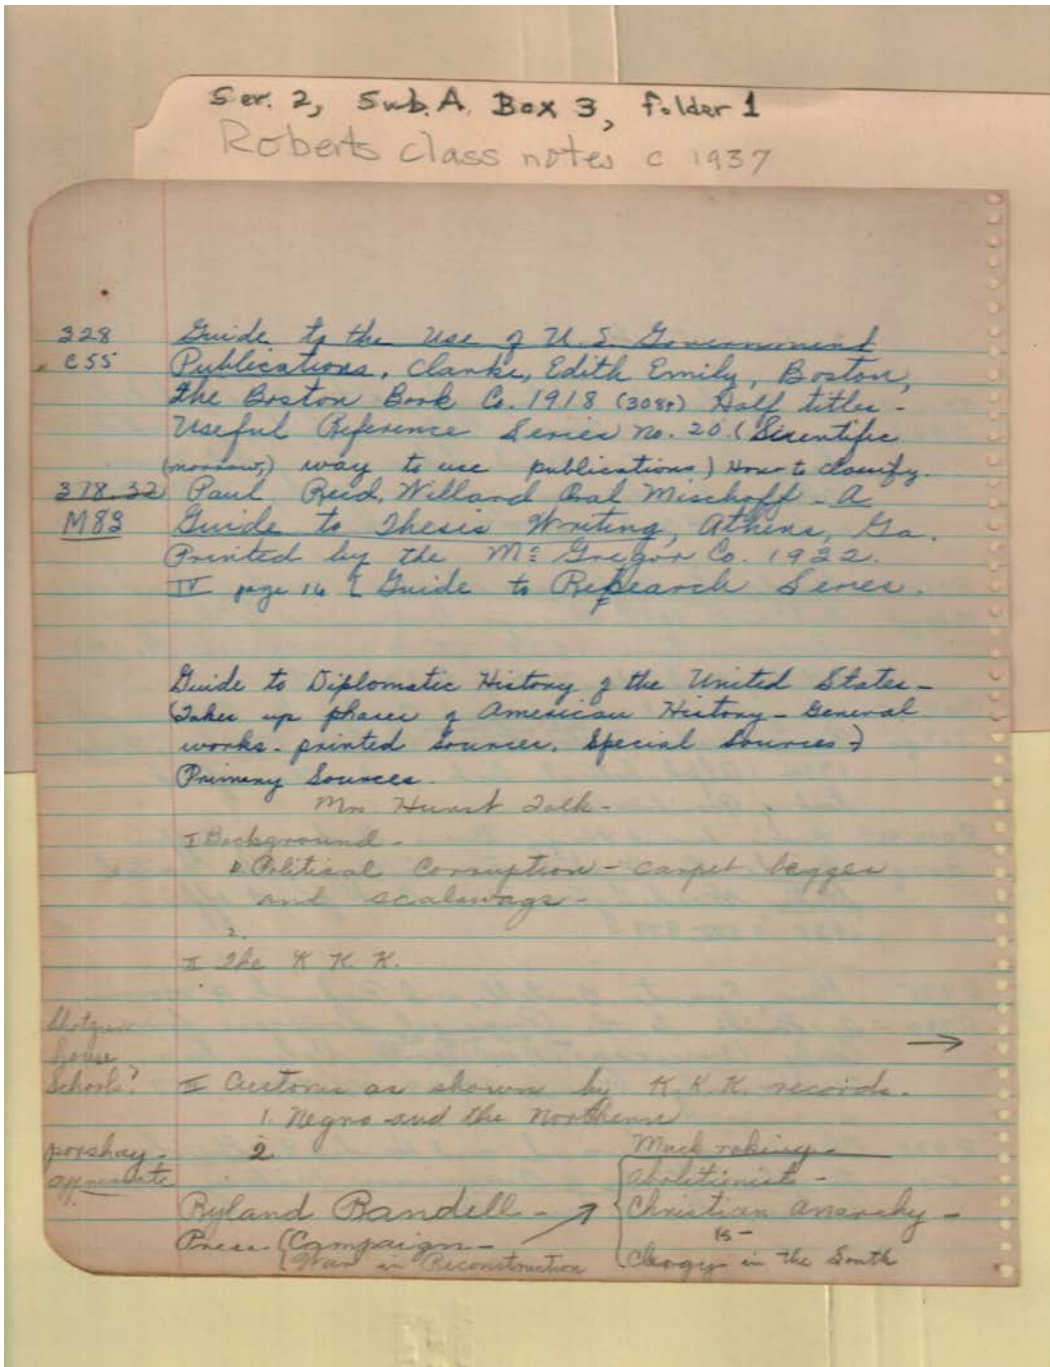 Ser. 2, Sub. A, Box 3, folder 1
Roberts class notes c 1937
328 Guide to the Use of U.S. Government
C55 Publications, Clarke, Edith Emily, Boston,
The Boston Book Co. 1918 (308p) Half title -
Useful Reference Series No. 20. (Scientific
way to use publications) How to classify.
378.32 Paul Reid, Willard Oral Mischoff - A
M83 Guide to Thesis Writing, Athens, Ga.
Printed by the Mc Gregor Co. 1932.
IV page 14 [ Guide to Research Series.
Guide to Diplomatic History of the United States -
(Takes up phases of American History - General
works - printed sources. Special Sources -)
Primary Sources.
Mrs Hurst Talk -
I Background -
1. Political Corruption - carpet begger
and scalawags -
2.
II The K K K.
Shotgun
house
Schools? II Customs as shown by K.K.K. records.
1. Negro and the Northern
2 Muck raking -
Abolitionist -
Ryland Randell - Christian anarchy -
is -
Press (Campaign -
War in Reconstruction Clergy in the South